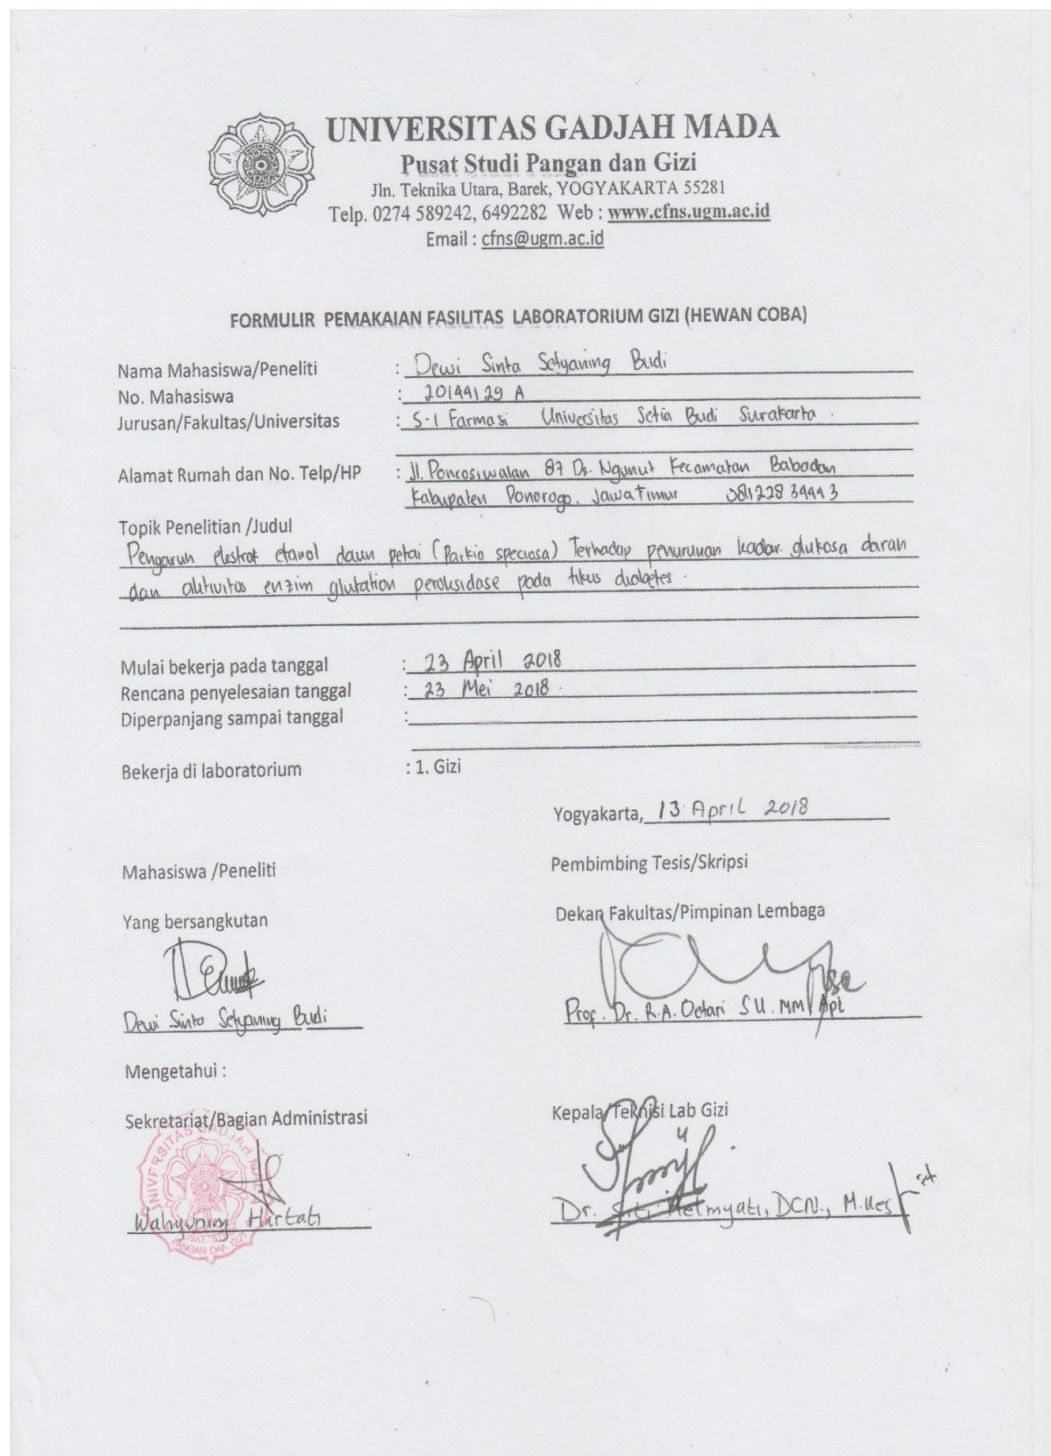 UNIVERSITAS GADJAH MADA
Pusat Studi Pangan dan Gizi
Jln. Teknika Utara, Barek, YOGYAKARTA 55281
Telp. 0274 589242, 6492282 Web : www.cfns.ugm.ac.id
Email : cfns@ugm.ac.id
FORMULIR PEMAKAIAN FASILITAS LABORATORIUM GIZI (HEWAN COBA)
Nama Mahasiswa/Peneliti : Dewi Sinta Setyaning Budi
No. Mahasiswa : 20144129 A
Jurusan/Fakultas/Universitas : S-1 Farmasi Universitas Setia Budi Surakarta .
Alamat Rumah dan No. Telp/HP : Jl. Poncosiwalan 87 Ds. Ngunut Kecamatan Babadan
Kabupaten Ponorogo, Jawa Timur
Topik Penelitian /Judul
Pengaruh ekstrak etanol daun petai (Parkia speciosa) Terhadap penurunan kadar glukosa darah
dan aktivitas enzim glutation peroksidase pada tikus diabetes .
Mulai bekerja pada tanggal : 23 April 2018
Rencana penyelesaian tanggal : 23 Mei 2018 .
Diperpanjang sampai tanggal :
Bekerja di laboratorium : 1. Gizi
Yogyakarta, 13 April 2018
Mahasiswa /Peneliti
Pembimbing Tesis/Skripsi
Yang bersangkutan
Dekan Fakultas/Pimpinan Lembaga
Dewi Sinta Setyaning Budi
Prof. Dr. R.A. Oetari SU. MM Apt
Mengetahui :
Sekretariat/Bagian Administrasi
Kepala/Teknisi Lab Gizi
UNIVERSITAS GADJAH MADA
PUSAT STUDI
PANGAN DAN GIZI
Wahyuning Hartati
Dr. Siti Helmyati, DCN., M.Kes